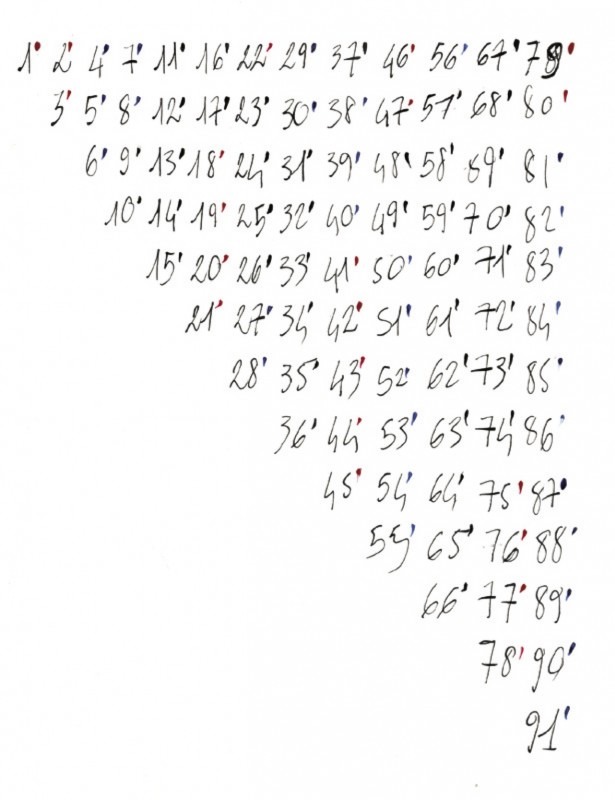 1' 2' 4' 7' 11' 16' 22' 29' 37' 46' 56' 67' 79'
3' 5' 8' 12' 17' 23' 30' 38' 47' 57' 68' 80'
6' 9' 13' 18' 24' 31' 39' 48' 58' 69' 81'
10' 14' 19' 25' 32' 40' 49' 59' 70' 82'
15' 20' 26' 33' 41' 50' 60' 71' 83'
21' 27' 34' 42' 51' 61' 72' 84'
28' 35' 43' 52' 62' 73' 85'
36' 44' 53' 63' 74' 86'
45' 54' 64' 75' 87'
55' 65' 76' 88'
66' 77' 89'
78' 90'
91'